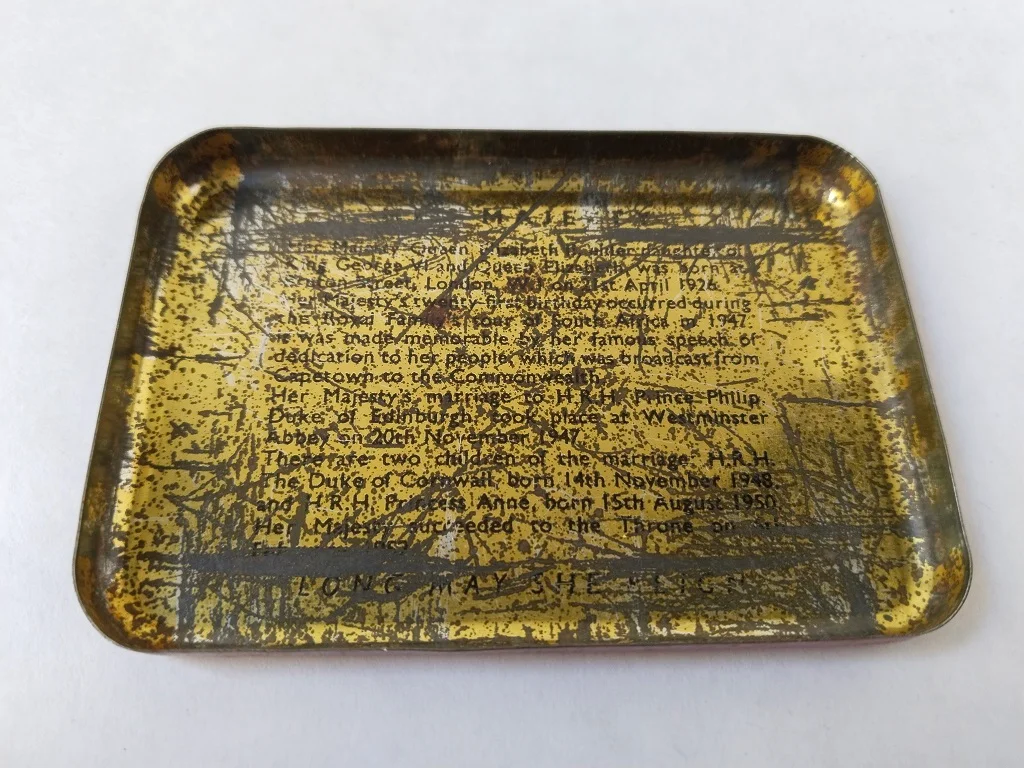 MAJESTY
Her Majesty Queen Elizabeth Daughter of
King George VI and Queen Elizabeth, was born at
Bruton Street, London, W.1 on 21st April 1926.
Her Majesty's twenty-first birthday occurred during
the Royal Family's tour of South Africa in 1947.
It was made memorable by her famous speech of
dedication to her people, which was broadcast from
Capetown to the Commonwealth.
Her Majesty's marriage to H.R.H. Prince Philip
Duke of Edinburgh, took place at Westminster
Abbey on 20th November 1947.
There are two children of the marriage, H.R.H.
The Duke of Cornwall, born 14th November 1948,
and H.R.H. Princess Anne, born 15th August 1950.
Her Majesty succeeded to the Throne on 6th
1952
LONG MAY SHE REIGN